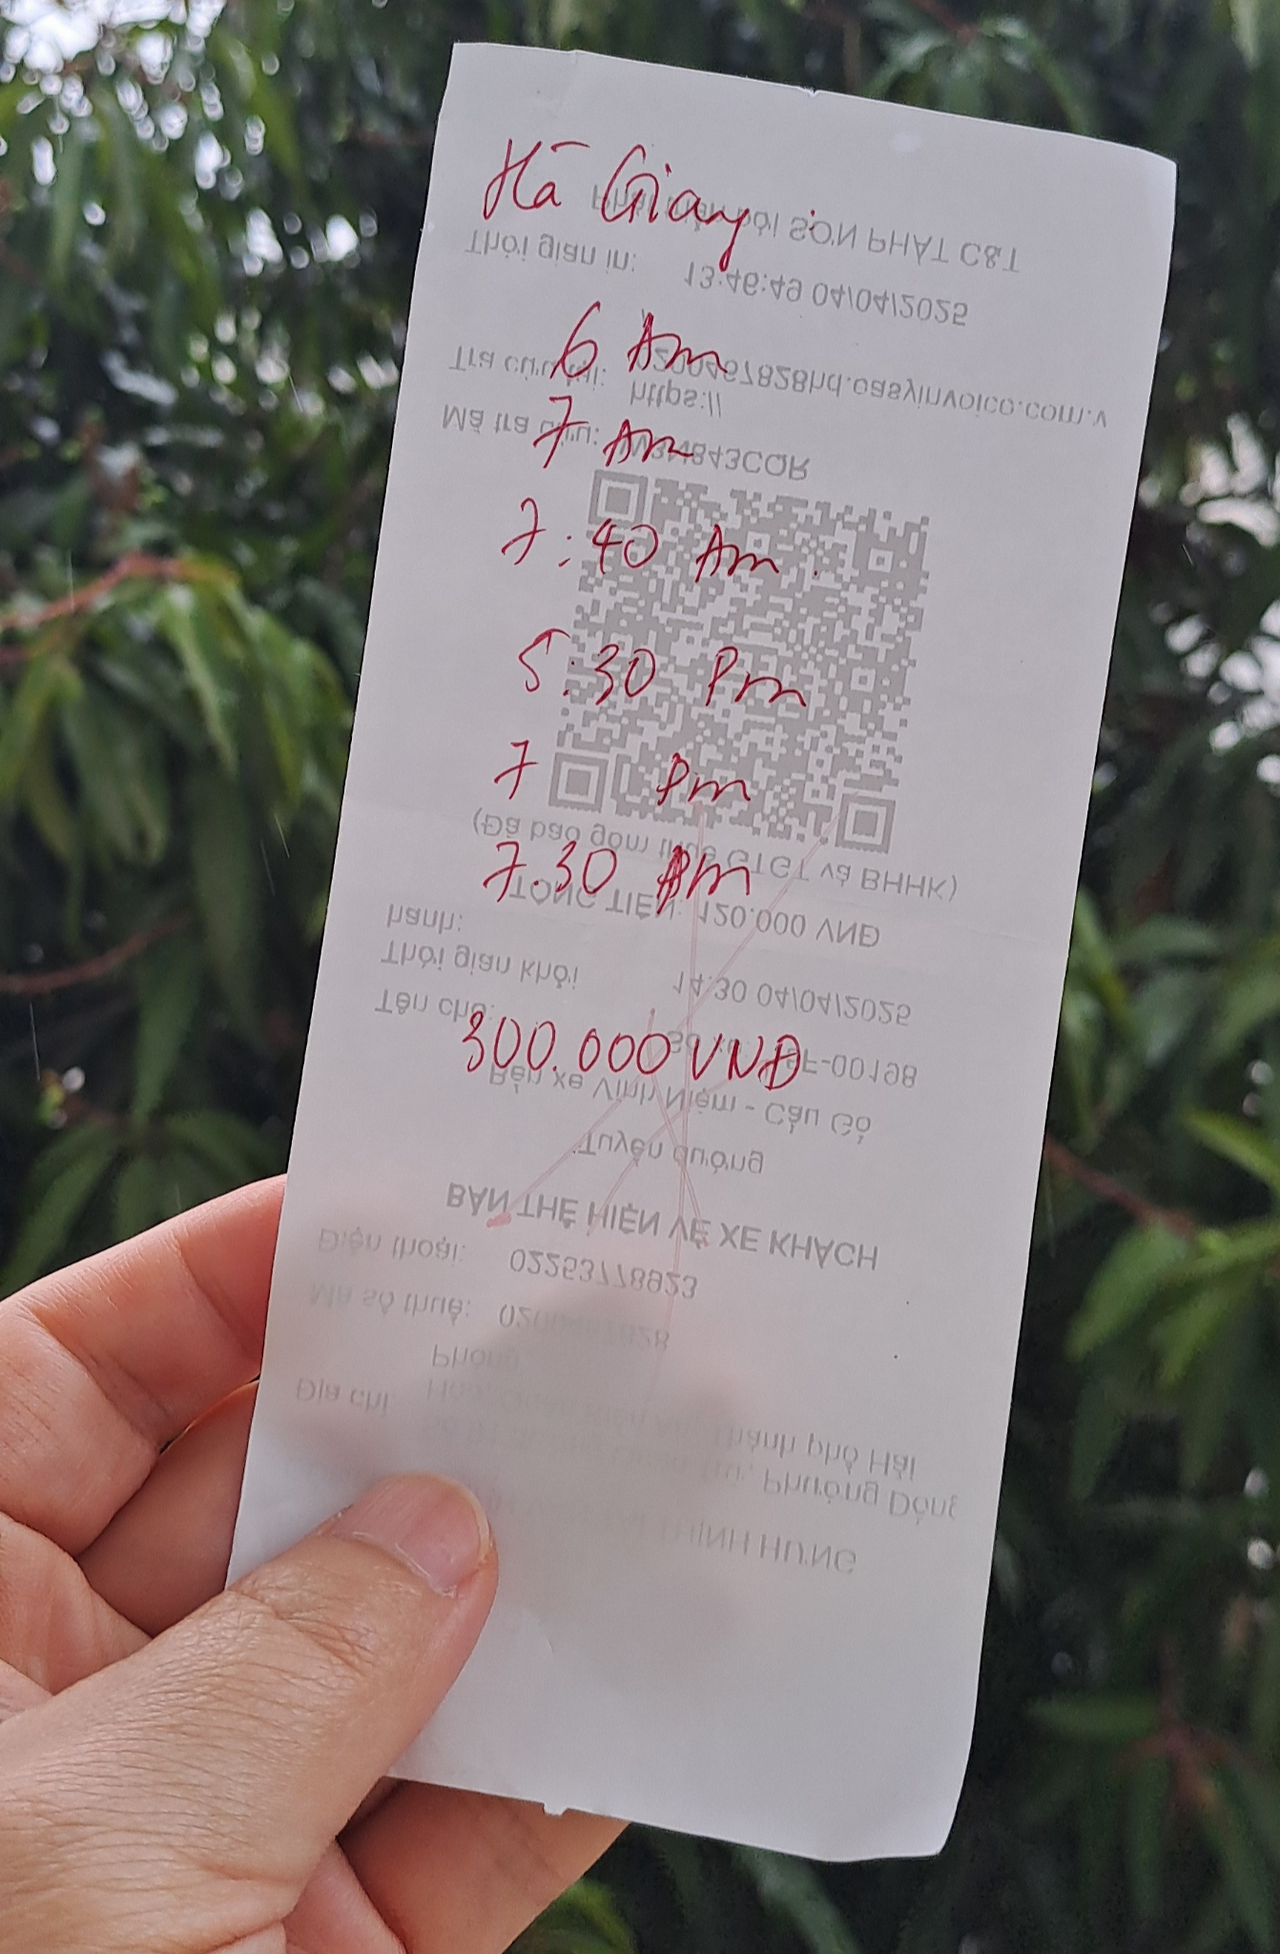 Hà Giang :
6 Am
7 Am
7:40 Am.
5:30 Pm
7 Pm
7.30 Pm
300.000 VNĐ
SƠN PHÁT C&T
Thời gian in: 13:46:49 04/04/2025
Tra cứu tại: https://
0200467828hd.easyinvoice.com.v
Mã tra cứu:
(Đã bao gồm thuế GTGT và BHHK)
TỔNG TIỀN: 120.000 VNĐ
Thời gian khởi hành: 14:30 04/04/2025
Bến xe Vĩnh Niệm - Cầu Gồ
Tuyến đường
BẢN THỂ HIỆN VÉ XE KHÁCH
Điện thoại: 02253778923
Mã số thuế: 0200467828
Địa chỉ
Phường Đông
Thành phố Hải
Phòng
THỊNH HƯNG